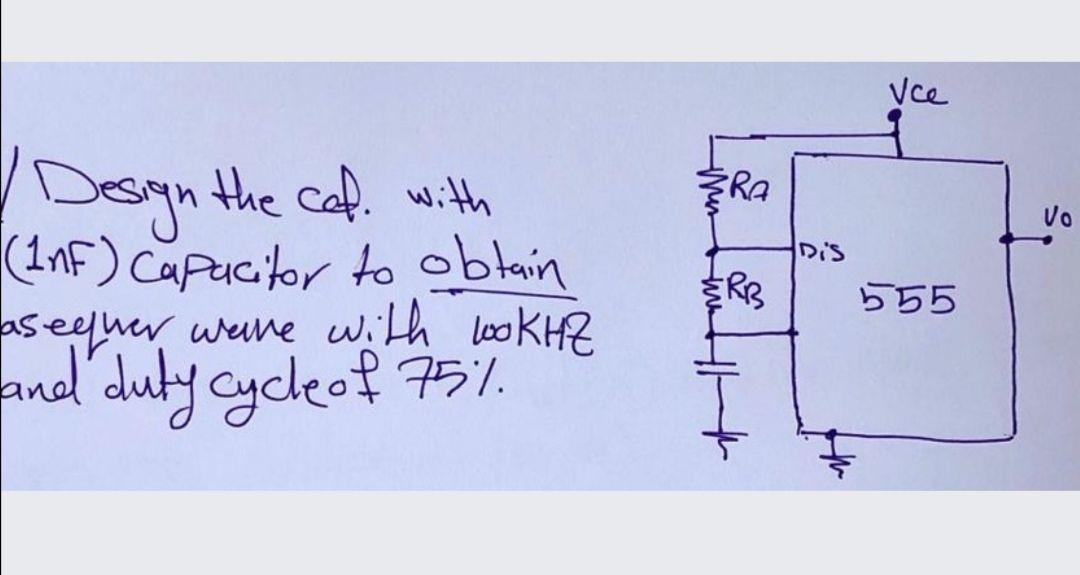 Design the cct. with
(1nF) Capacitor to obtain
aseequer wave with 100KHZ
and duty cycle of 75%.
Vcc
RA
Dis
RB
555
Vo